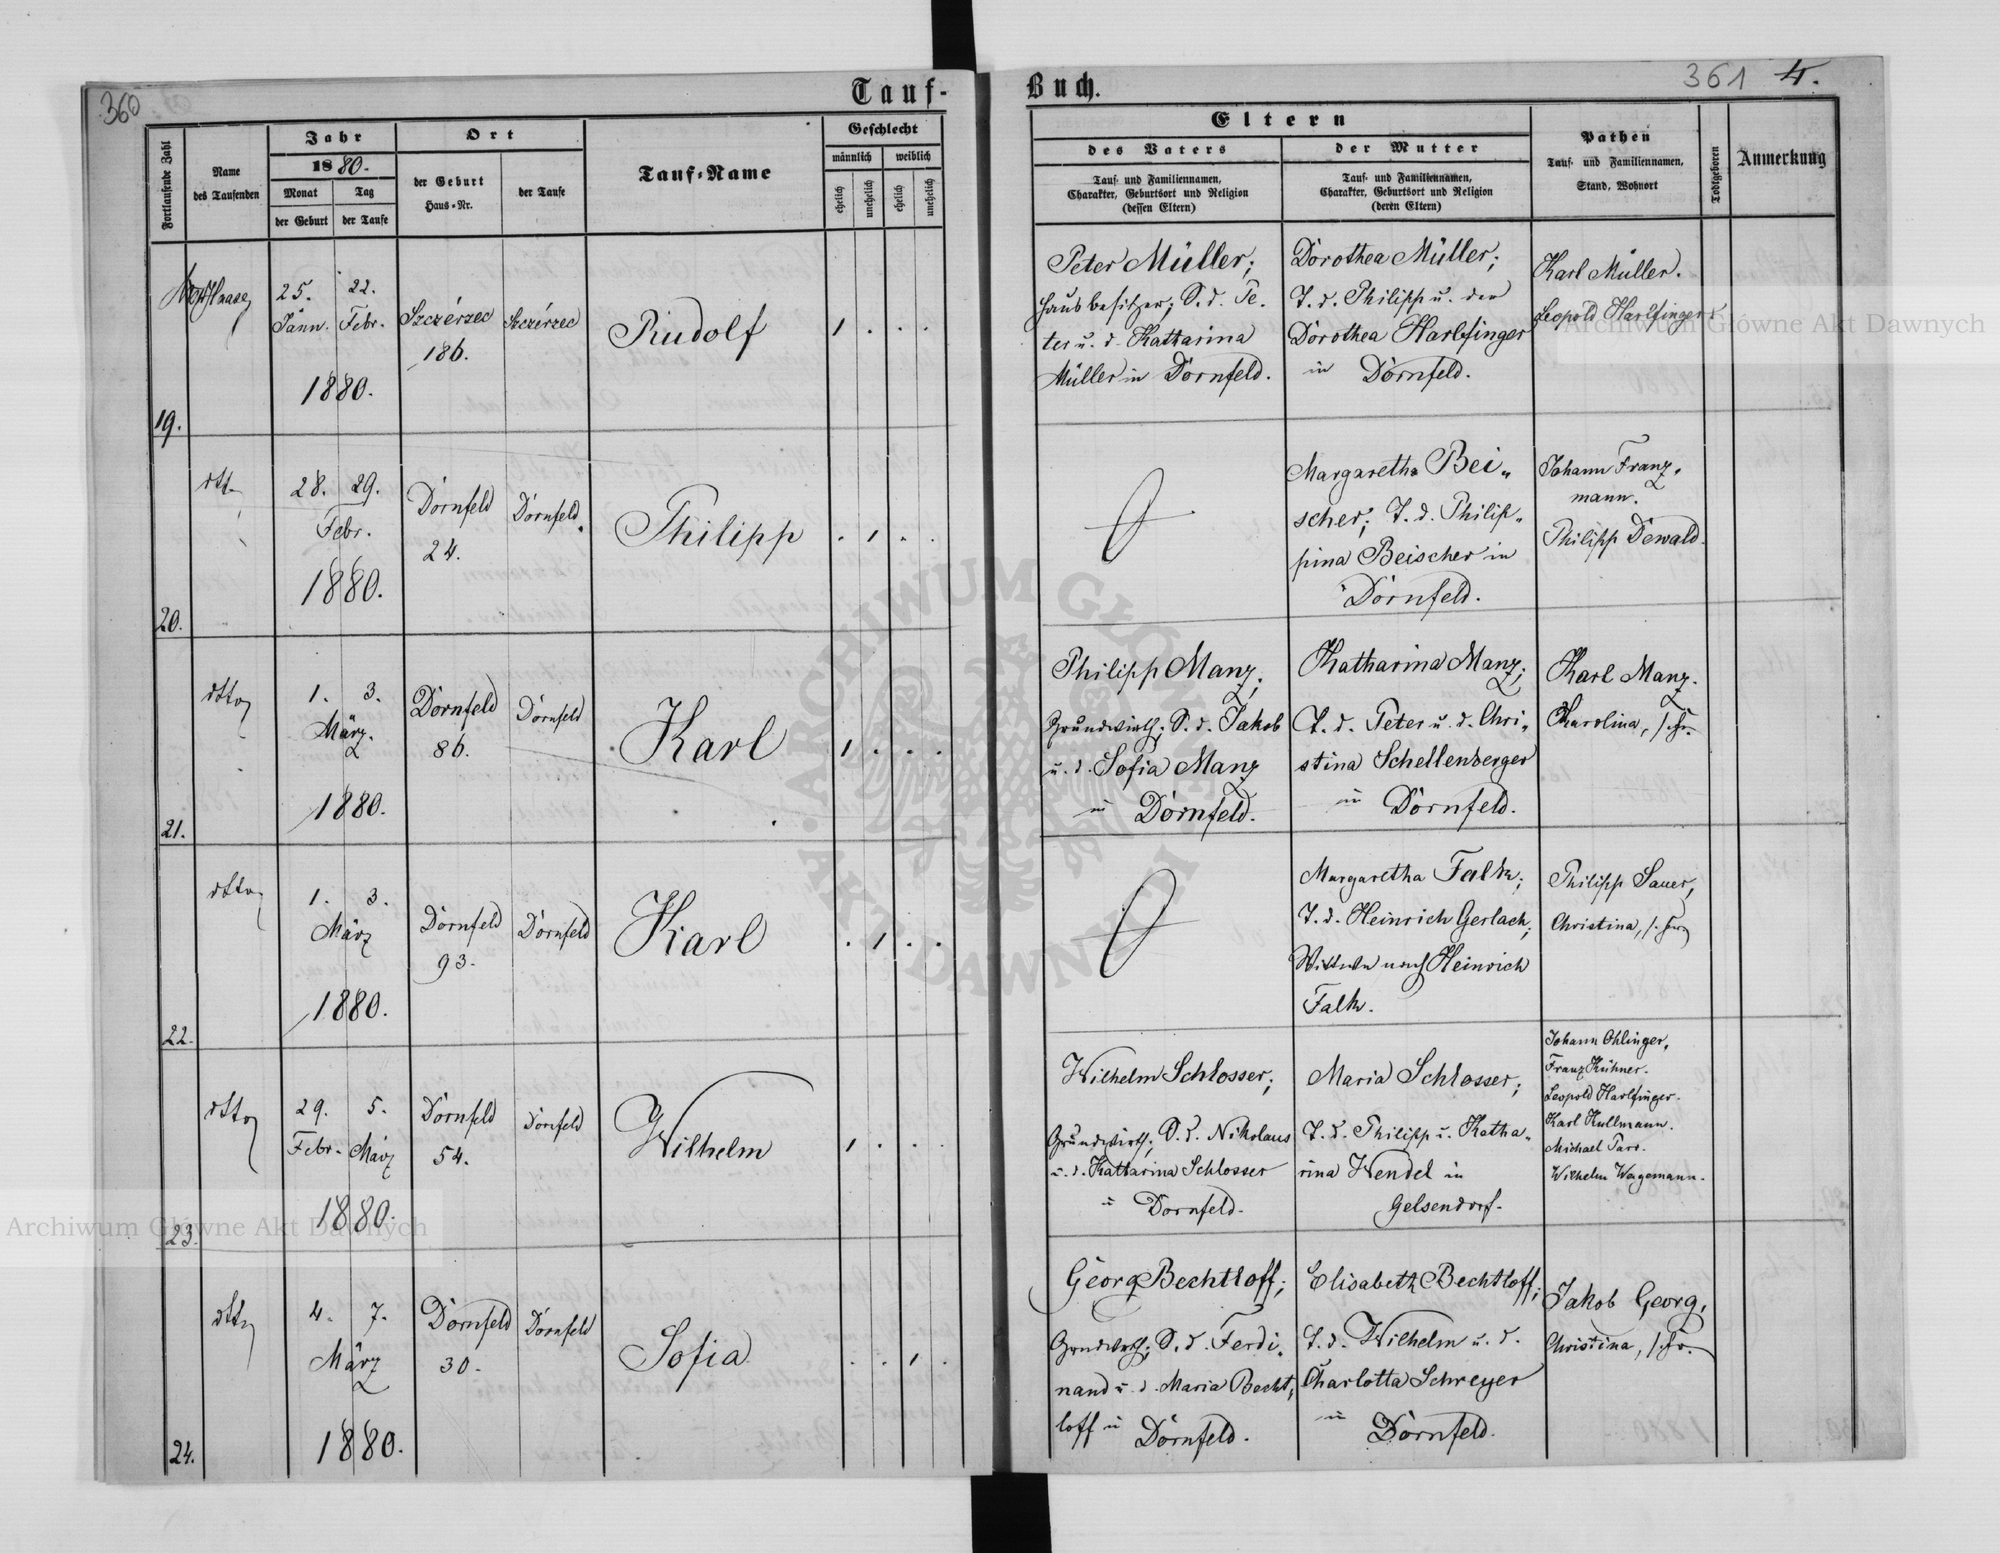 360
Tauf-
Buch.
361 4.
Fortlaufende Zahl
Name
des Taufenden
Jahr
1880.
Monat
Tag
der Geburt
der Taufe
Ort
der Geburt
Haus-Nr.
der Taufe
Tauf-Name
Geschlecht
männlich
weiblich
ehelich
unehelich
ehelich
unehelich
Eltern
des Vaters
Tauf- und Familiennamen,
Charakter, Geburtsort und Religion
(dessen Eltern)
der Mutter
Tauf- und Familiennamen,
Charakter, Geburtsort und Religion
(deren Eltern)
Pathen
Tauf- und Familiennamen,
Stand, Wohnort
Todtgeboren
Anmerkung
19.
Haase
25. 22.
Jänn. Febr.
1880.
Szczérzec
186.
Szczérzec
Rudolf
1 . . .
Peter Müller;
Hausbesitzer; S. d. Pe-
ter u. d. Katharina
Müller in Dornfeld.
Dorothea Müller;
T. d. Philipp u. der
Dorothea Harlfinger
in Dornfeld.
Karl Müller.
Leopold Harlfinger
20.
dtto
28. 29.
Febr.
1880.
Dornfeld
24.
Dornfeld.
Philipp
. 1 . .
Margaretha Bei-
scher; T. d. Philip-
pina Beischer in
Dornfeld.
Johann Franz-
mann.
Philipp Dewald.
21.
dtto
1. 3.
März.
1880.
Dornfeld
86.
Dornfeld
Karl
1 . . .
Philipp Manz;
Grundwirth; S. d. Jakob
u. d. Sofia Manz
in Dornfeld.
Katharina Manz;
T. d. Peter u. d. Chri-
stina Schellenberger
in Dornfeld.
Karl Manz.
Karolina, s. Fr.
22.
dtto
1. 3.
März
1880.
Dornfeld
93.
Dornfeld
Karl
. 1 . .
Margaretha Falk;
T. d. Heinrich Gerlach;
Wittwe nach Heinrich
Falk.
Philipp Sauer,
Christina, s. Frau
23.
dtto
29. 5.
Febr. März
1880.
Dornfeld
54.
Dornfeld
Wilhelm
1 . . .
Wilhelm Schlosser;
Grundwirth; S. d. Nikolaus
u. d. Katharina Schlosser
in Dornfeld.
Maria Schlosser;
T. d. Philipp u. Katha-
rina Wendel in
Gelsendorf.
Johann Ohlinger,
Franz Kühner.
Leopold Harlfinger.
Karl Kullmann.
Michael Parr.
Wilhelm Wagemann.
24.
dtto
4. 7.
März
1880.
Dornfeld
30.
Dornfeld
Sofia
. . 1 .
Georg Bechtloff;
Grundwirth; S. d. Ferdi-
nand u. d. Maria Becht-
loff in Dornfeld.
Elisabeth Bechtloff;
T. d. Wilhelm u. d.
Charlotta Schreyer
in Dornfeld.
Jakob Georg,
Christina, s. Fr.
Archiwum Główne Akt Dawnych
Archiwum Główne Akt Dawnych
ARCHIWUM GŁÓWNE
AKT DAWNYCH